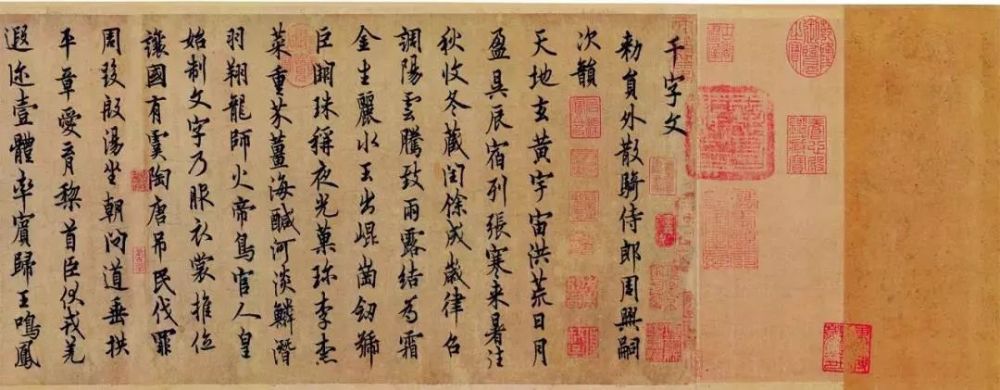 千字文
勅員外散騎侍郎周興嗣
次韻
天地玄黃宇宙洪荒日月
盈昃辰宿列張寒来暑往
秋收冬藏閏餘成歲律召
調陽雲騰致雨露結為霜
金生麗水玉出崐崗劒號
巨闕珠稱夜光菓珍李柰
菜重芥薑海鹹河淡鱗潛
羽翔龍師火帝鳥官人皇
始制文字乃服衣裳推位
讓國有虞陶唐吊民伐罪
周發殷湯坐朝問道垂拱
平章愛育黎首臣伏戎羌
遐迩壹體率賓歸王鳴鳳